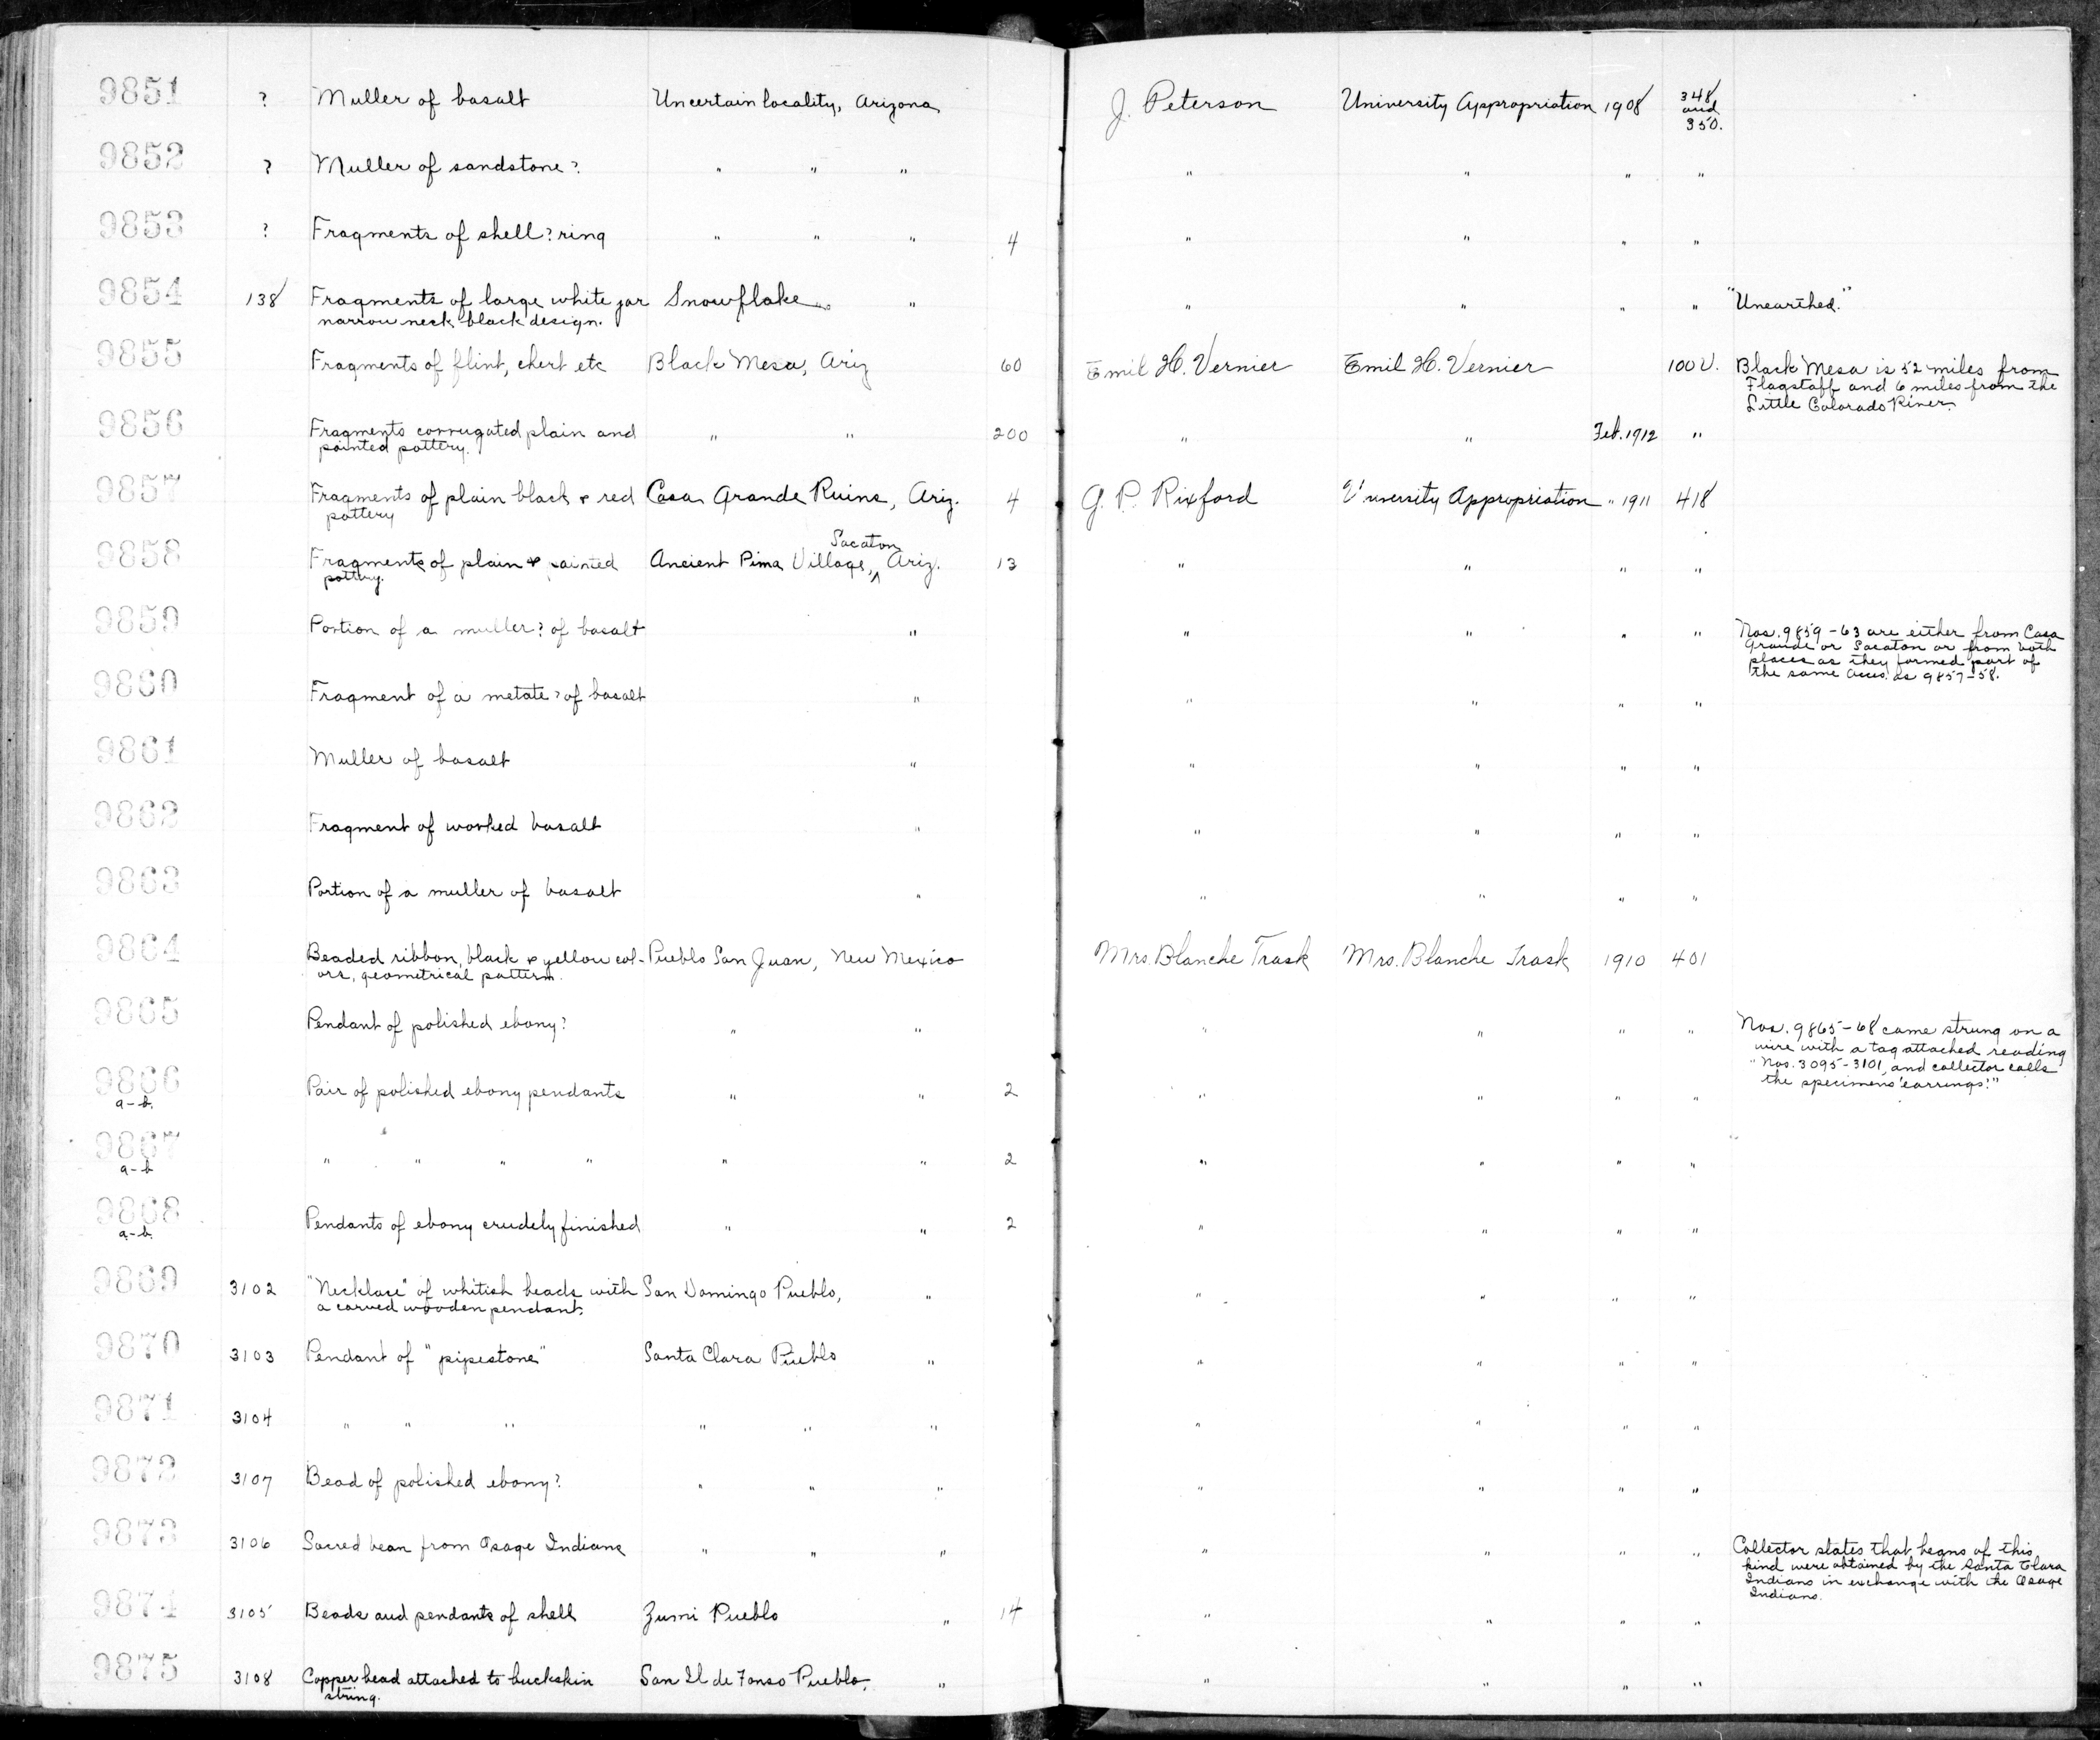 9851 ? Muller of basalt Uncertain locality, Arizona J. Peterson University Appropriation 1908 348 and 350.
9852 ? Muller of sandstone? " " " " " " "
9853 ? Fragments of shell? ring " " " 4 " " " "
9854 138 Fragments of large white jar Snowflake " " " " " "Unearthed."
narrow neck black design.
9855 Fragments of flint, chert etc Black Mesa, Ariz 60 Emil H. Vernier Emil H. Vernier 100 V. Black Mesa is 52 miles from
Flagstaff and 6 miles from the
Little Colorado River.
9856 Fragments corrugated plain and " " 200 " " Feb. 1912 "
painted pottery.
9857 Fragments of plain black & red Casa Grande Ruins, Ariz. 4 G. P. Rixford University Appropriation " 1911 418
pottery
9858 Fragments of plain & painted Ancient Pima Village, Sacaton Ariz. 13 " " " "
pottery.
9859 Portion of a muller? of basalt " " " " " Nos. 9859-63 are either from Casa
Grande or Sacaton or from both
places as they formed part of
the same Acces. as 9857-58.
9860 Fragment of a metate? of basalt " " " " "
9861 Muller of basalt " " " " "
9862 Fragment of worked basalt " " " " "
9863 Portion of a muller of basalt " " " " "
9864 Beaded ribbon, black & yellow col- Pueblo San Juan, New Mexico Mrs. Blanche Trask Mrs. Blanche Trask 1910 401
ors, geometrical pattern.
9865 Pendant of polished ebony? " " " " " " Nos. 9865-68 came strung on a
wire with a tag attached reading
"Nos. 3095-3101, and collector calls
the specimens 'earrings.'"
9866 Pair of polished ebony pendants " " 2 " " " "
a-b.
9867 " " " " " " 2 " " " "
a-b
9868 Pendants of ebony crudely finished " " 2 " " " "
a-b.
9869 3102 "Necklace" of whitish beads with San Domingo Pueblo, " " " " "
a carved wooden pendant.
9870 3103 Pendant of "pipestone" Santa Clara Pueblo " " " " "
9871 3104 " " " " " " " " " "
9872 3107 Bead of polished ebony? " " " " " " "
9873 3106 Sacred bean from Osage Indians " " " " " " " Collector states that beans of this
kind were obtained by the Santa Clara
Indians in exchange with the Osage
Indians.
9874 3105 Beads and pendants of shell Zuni Pueblo " 14 " " " "
9875 3108 Copper bead attached to buckskin San Il de Fonso Pueblo, " " " " "
string.